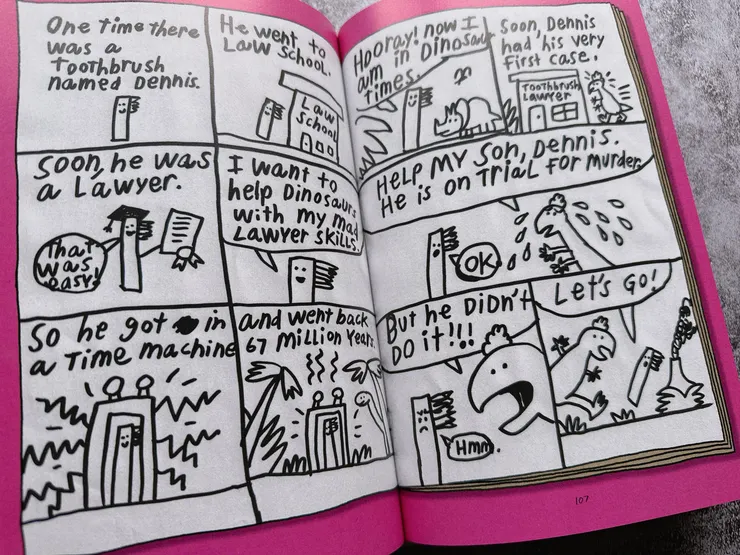 One time there
was a
toothbrush
named Dennis.
He went to
Law School.
Law
School
Soon, he was
a Lawyer.
That
was
easy!
I want to
help Dinosaurs
with my mad
Lawyer skills.
So he got in
a Time machine
and went back
67 Million Years.
Hooray! now I
am in Dinosaur
times.
Soon, Dennis
had his very
first case.
Toothbrush
Lawyer
Help MY Son, Dennis.
He is on Trial for Murder.
OK.
But he Didn't
Do it!!!
Hmm.
Let's Go!
107